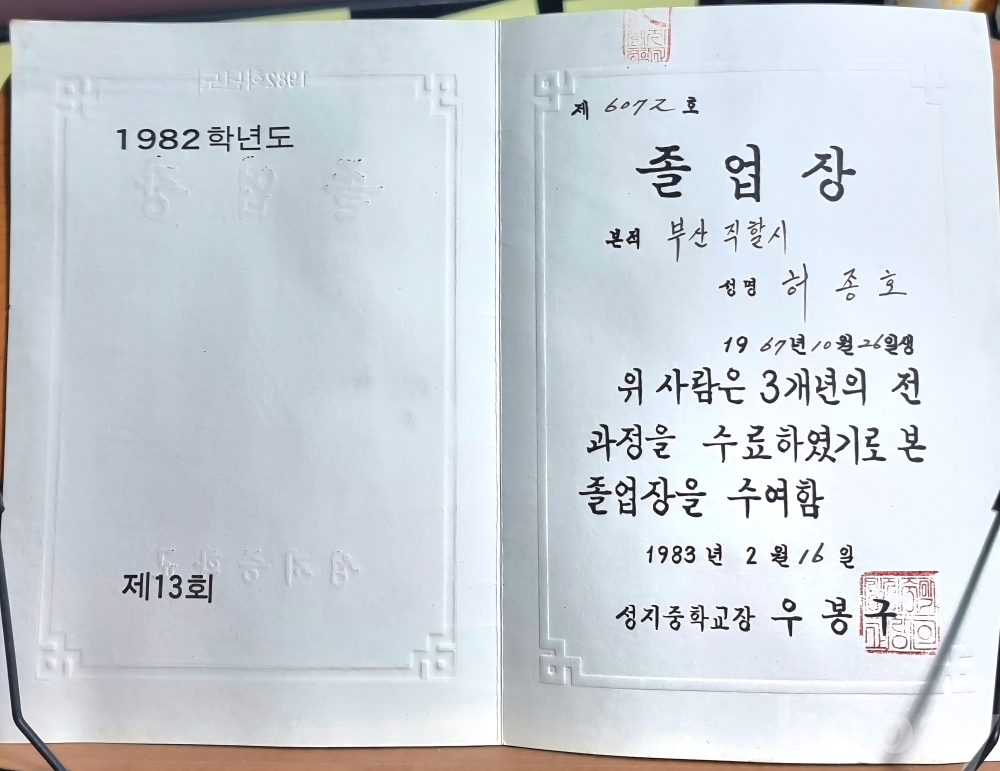 1982학년도
제13회
제 6072 호
졸업장
본적 부산직할시
성명 허종호
1967년10월26일생
위 사람은 3개년의 전
과정을 수료하였기로 본
졸업장을 수여함
1983년 2월16일
성지중학교장 우봉구